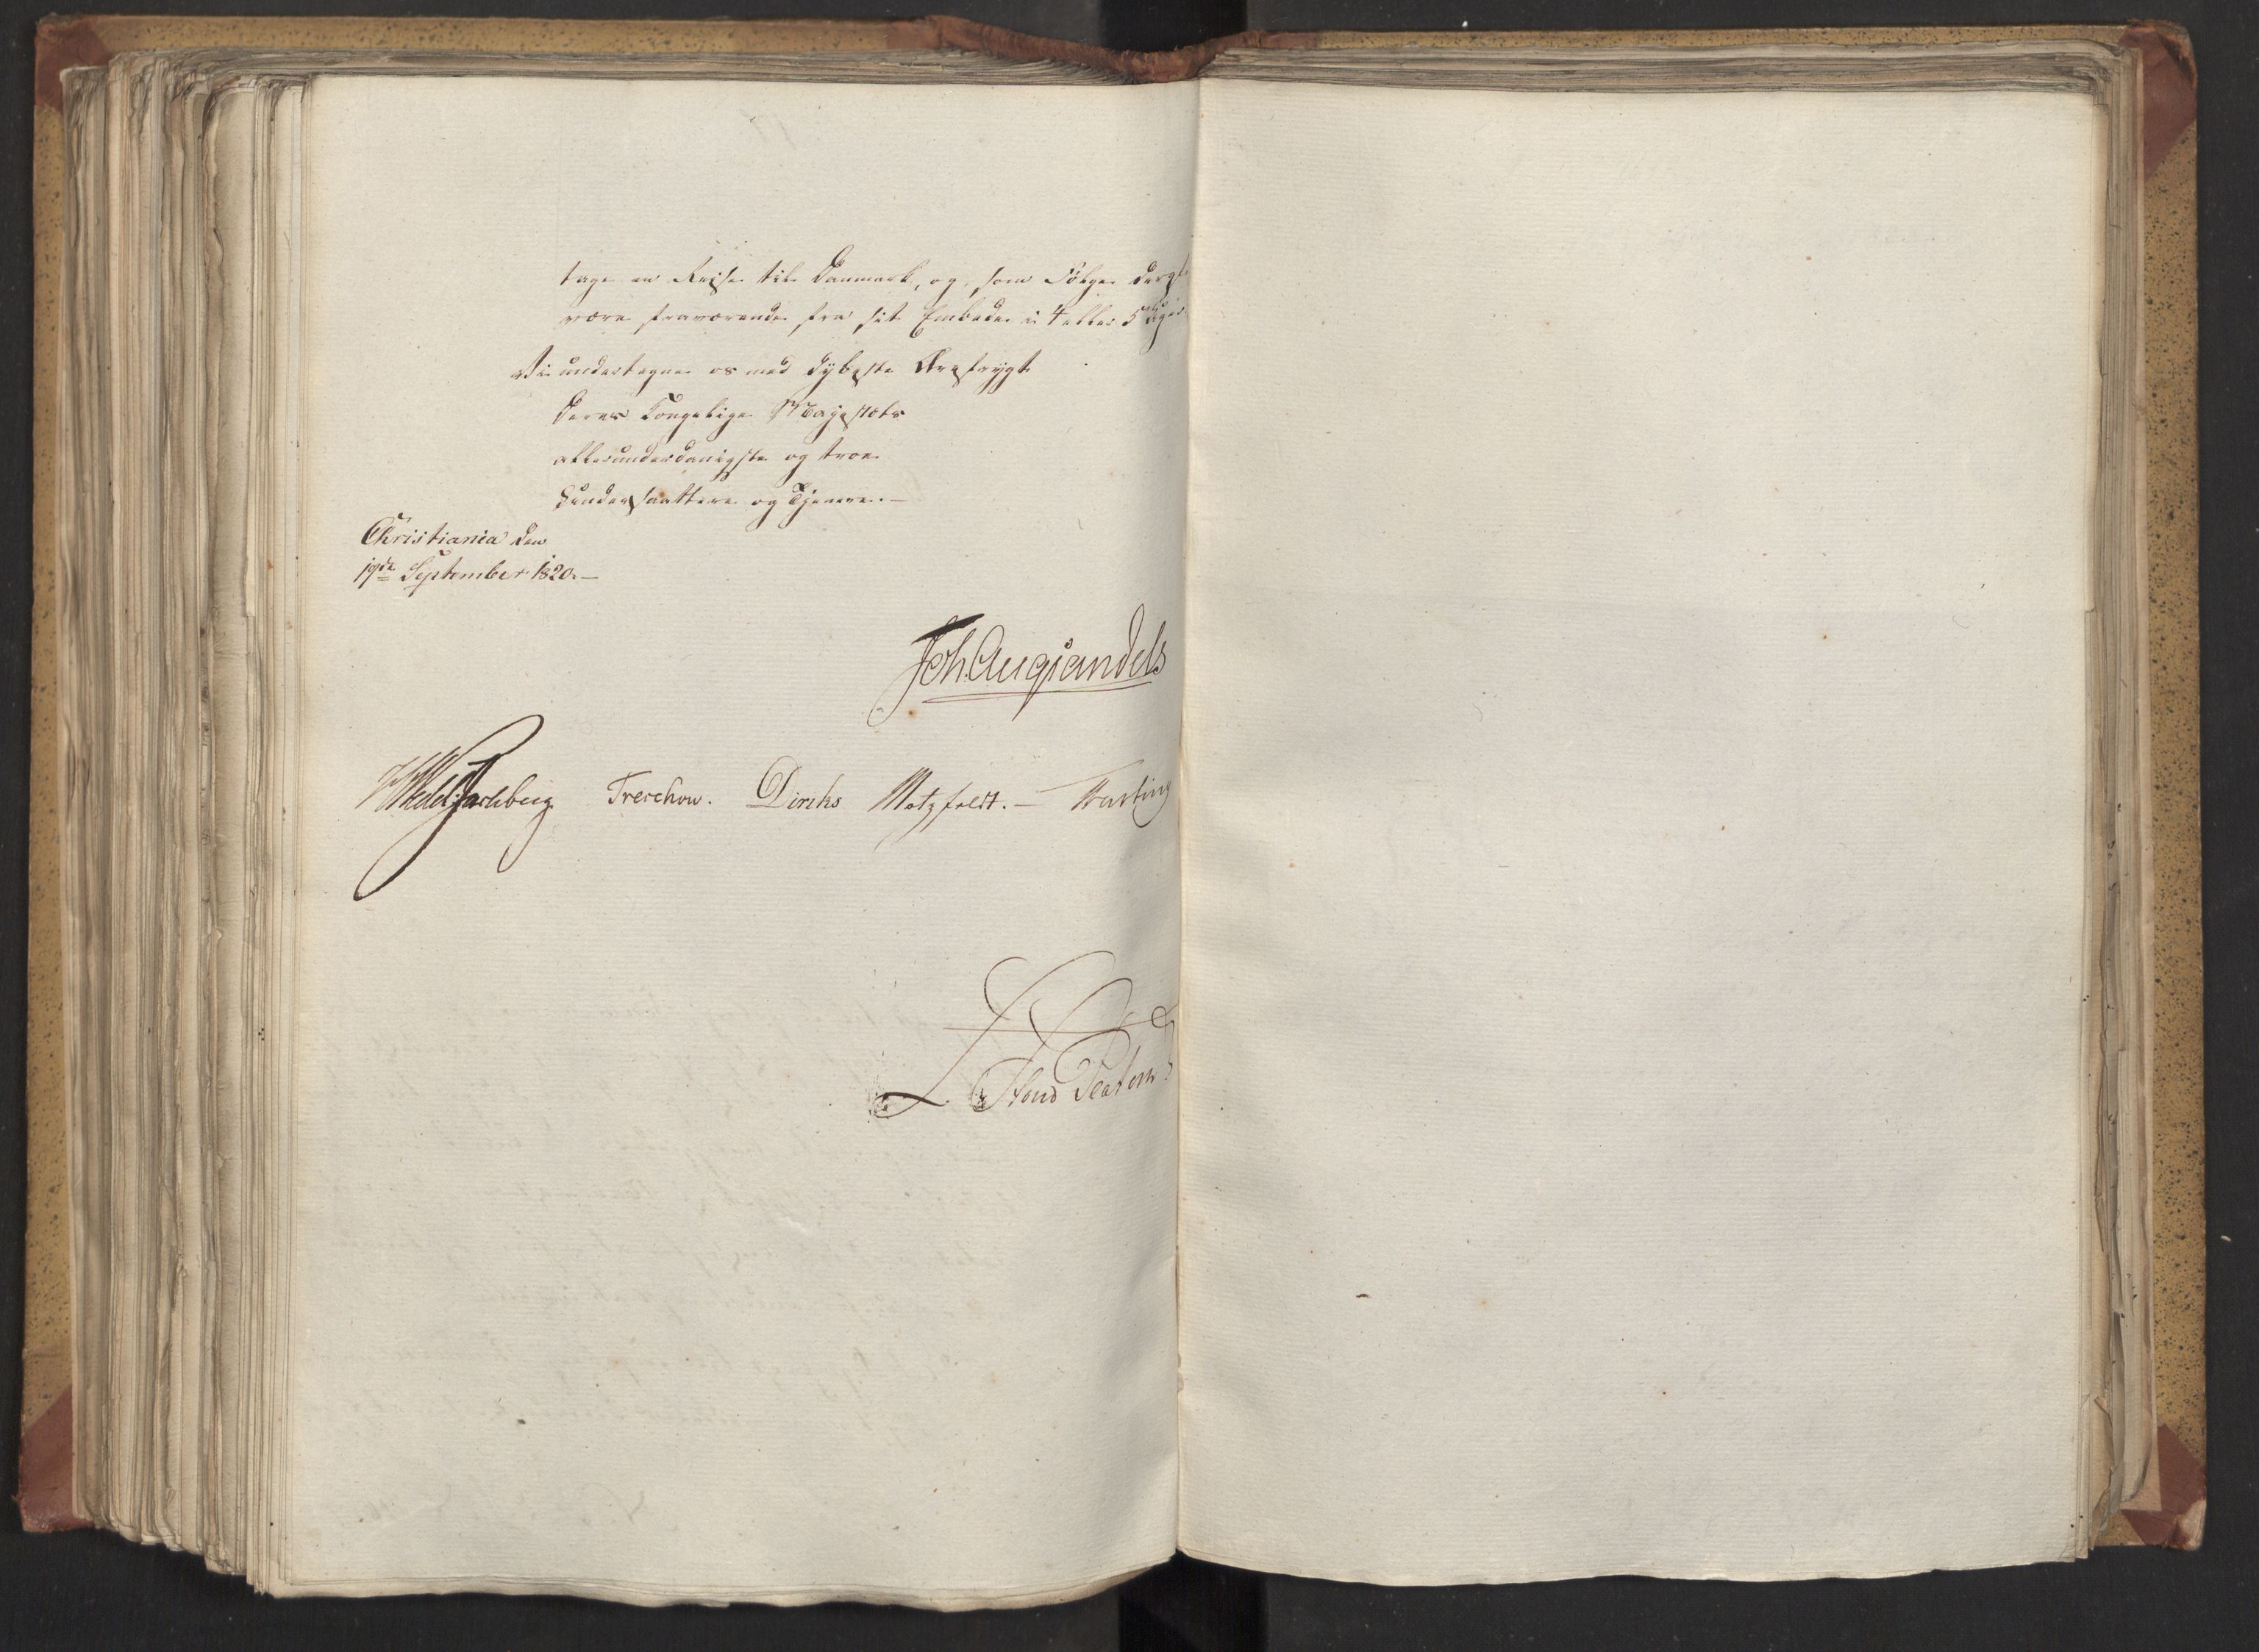 tage en Reise til Danmark, og som Følge deraf
være fraværende fra sit Embede i 4 eller 5 Uger.
Vi undertegne os med dybeste Ærefrygt
Deres Kongelige Majestæts
allerunderdanigste og troe
Undersaattere og Tjenere. —
Christiania den
19de September 1820. —
Joh. Aug Sandels
Wedel Jarlsberg Treschow. Diriks Motzfeldt. —